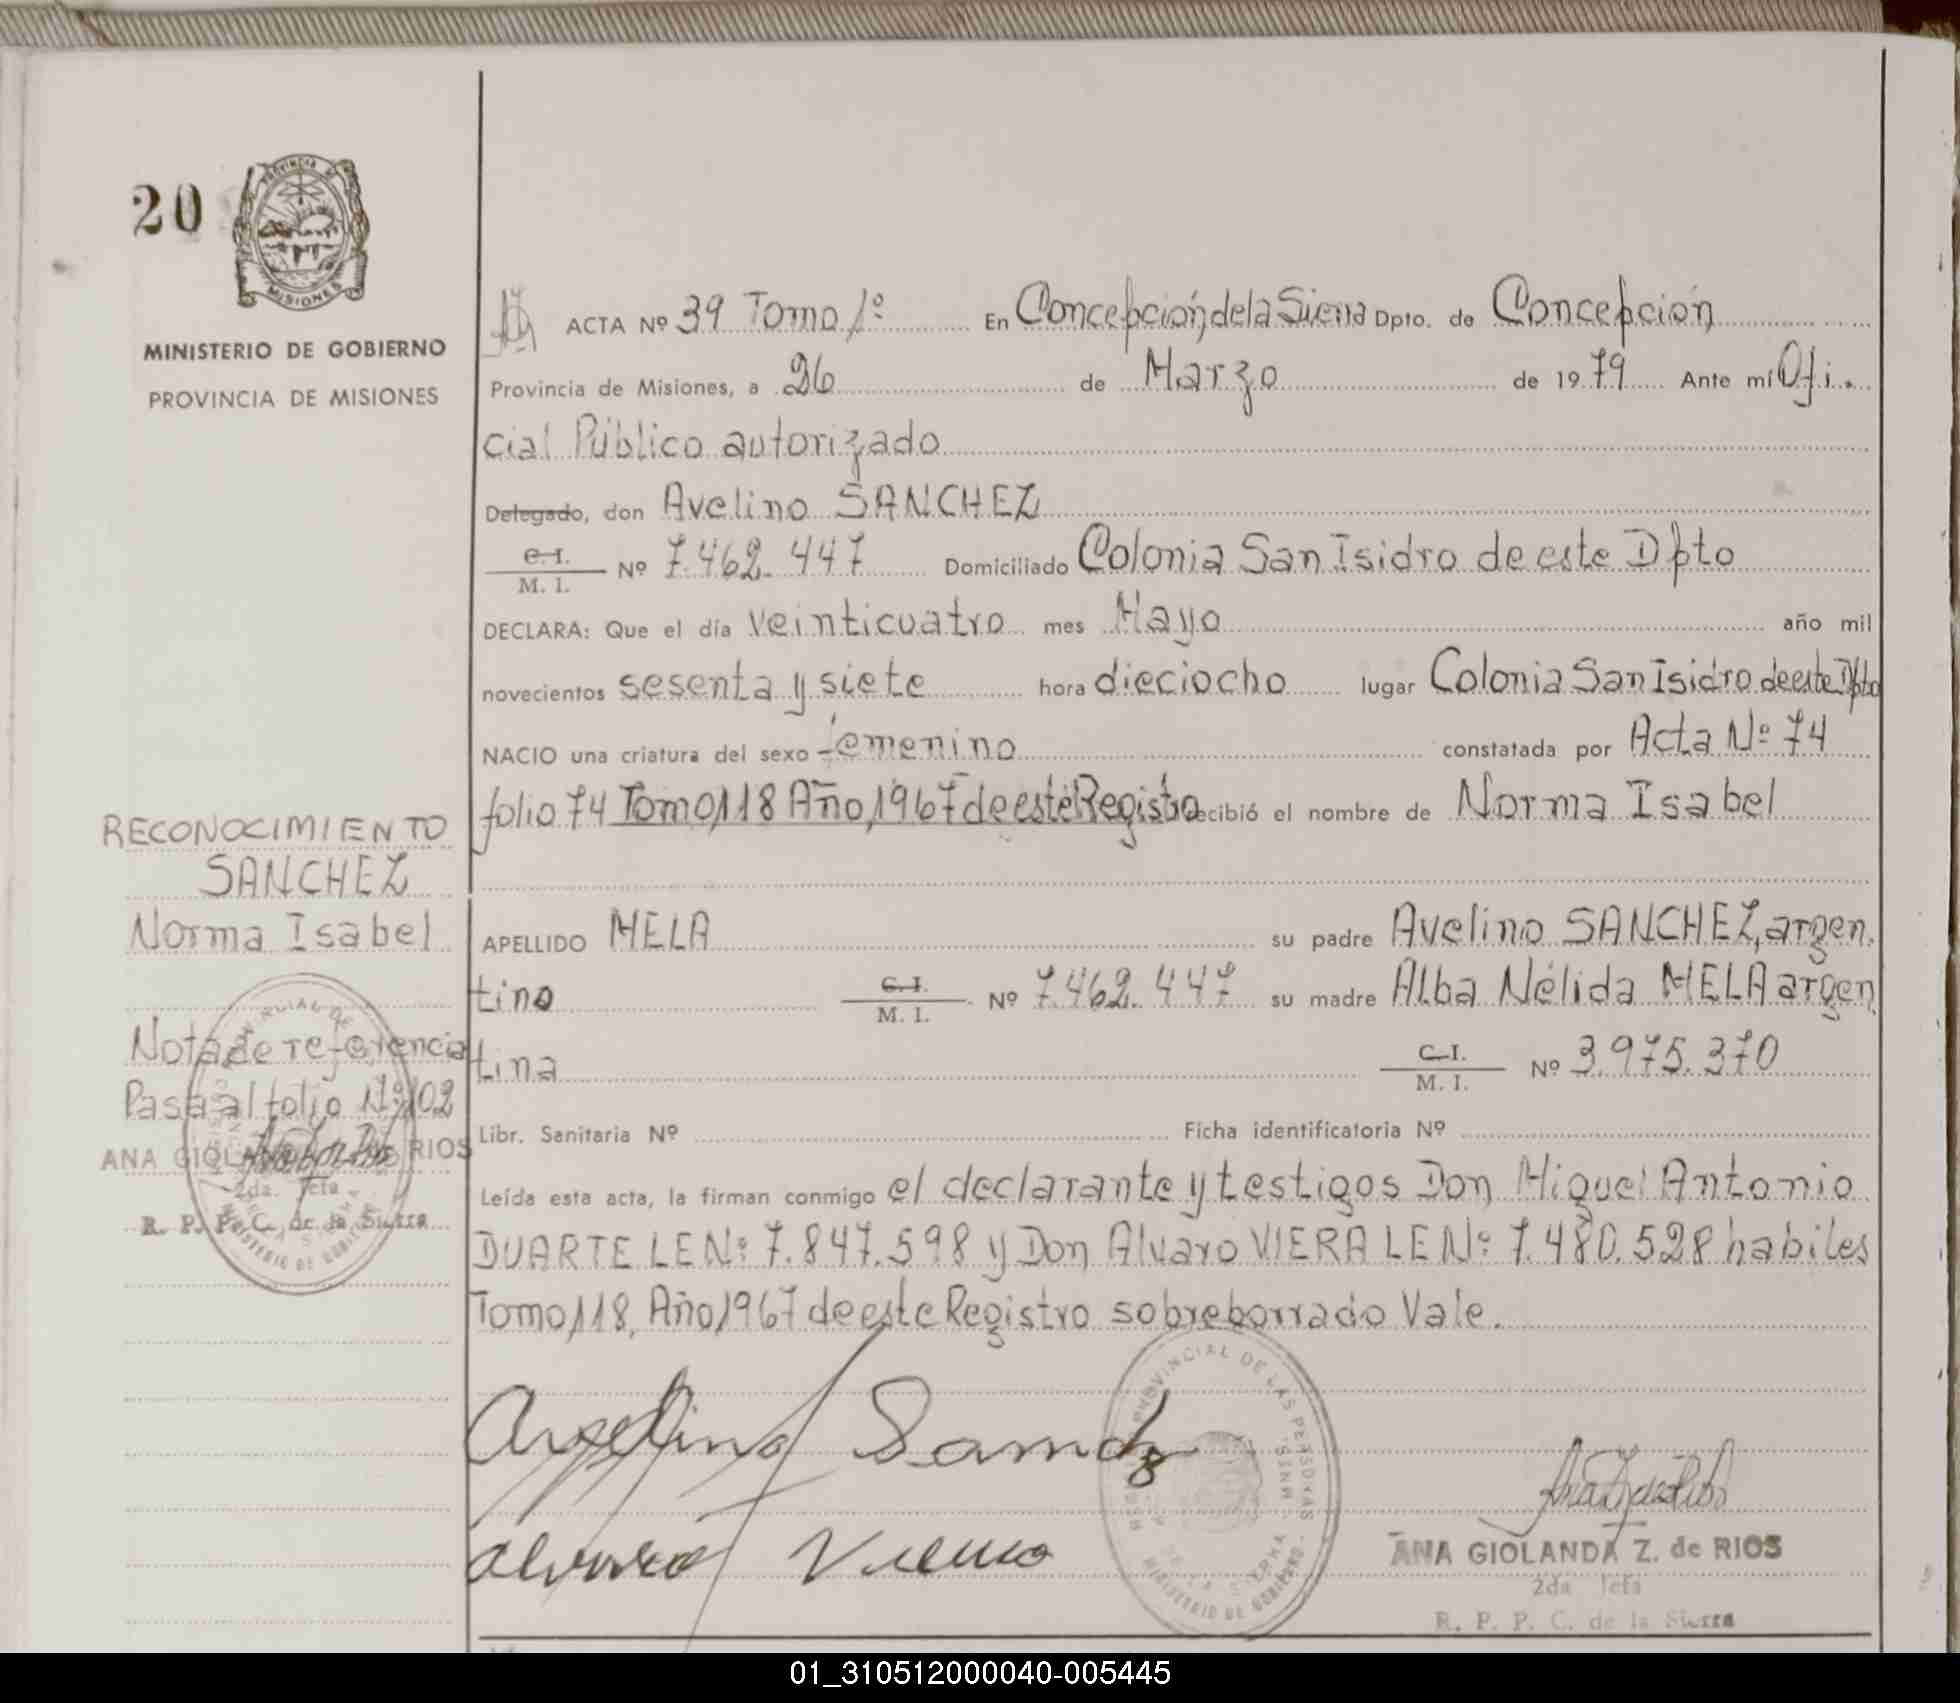 20
PROVINCIA DE
MISIONES
MINISTERIO DE GOBIERNO
PROVINCIA DE MISIONES
ACTA Nº 39 Tomo 1º En Concepción de la Sierra Dpto. de Concepción
Provincia de Misiones, a 26 de Marzo de 1979 Ante mí Ofi.
cial Público autorizado
Delegado, don Avelino SANCHEZ
C. I.
M. I. Nº 7.462.447 Domiciliado Colonia San Isidro de este Dpto
DECLARA: Que el día veinticuatro mes Mayo año mil
novecientos sesenta y siete hora dieciocho lugar Colonia San Isidro de este Dpto
NACIO una criatura del sexo femenino constatada por Acta Nº 74
folio 74 Tomo,118 Año,1967 de este Registro recibió el nombre de Norma Isabel
RECONOCIMIENTO
SANCHEZ
Norma Isabel
APELLIDO MELA su padre Avelino SANCHEZ, argen.
tino C. I. M. I. Nº 7.462.447 su madre Alba Nélida MELA argen
tina C. I. M. I. Nº 3.975.370
Nota de referencia
Pasa al folio Nº 102
ANA GIOLANDA Z. de RIOS
2da. Jefa
R. P. P. C. de la Sierra
Libr. Sanitaria Nº Ficha identificatoria Nº
Leída esta acta, la firman conmigo el declarante y testigos Don Miguel Antonio
DUARTE LE Nº 7.847.598 y Don Alvaro VIERA LE Nº 7.480.528 habiles
Tomo,118, Año,1967 de este Registro sobreborrado Vale.
Avelino Sanchez
PROVINCIAL DE LAS PERSONAS
MINISTERIO DE GOBIERNO
ANA GIOLANDA Z. de RIOS
2da Jefa
R. P. P. C. de la Sierra
01_310512000040-005445